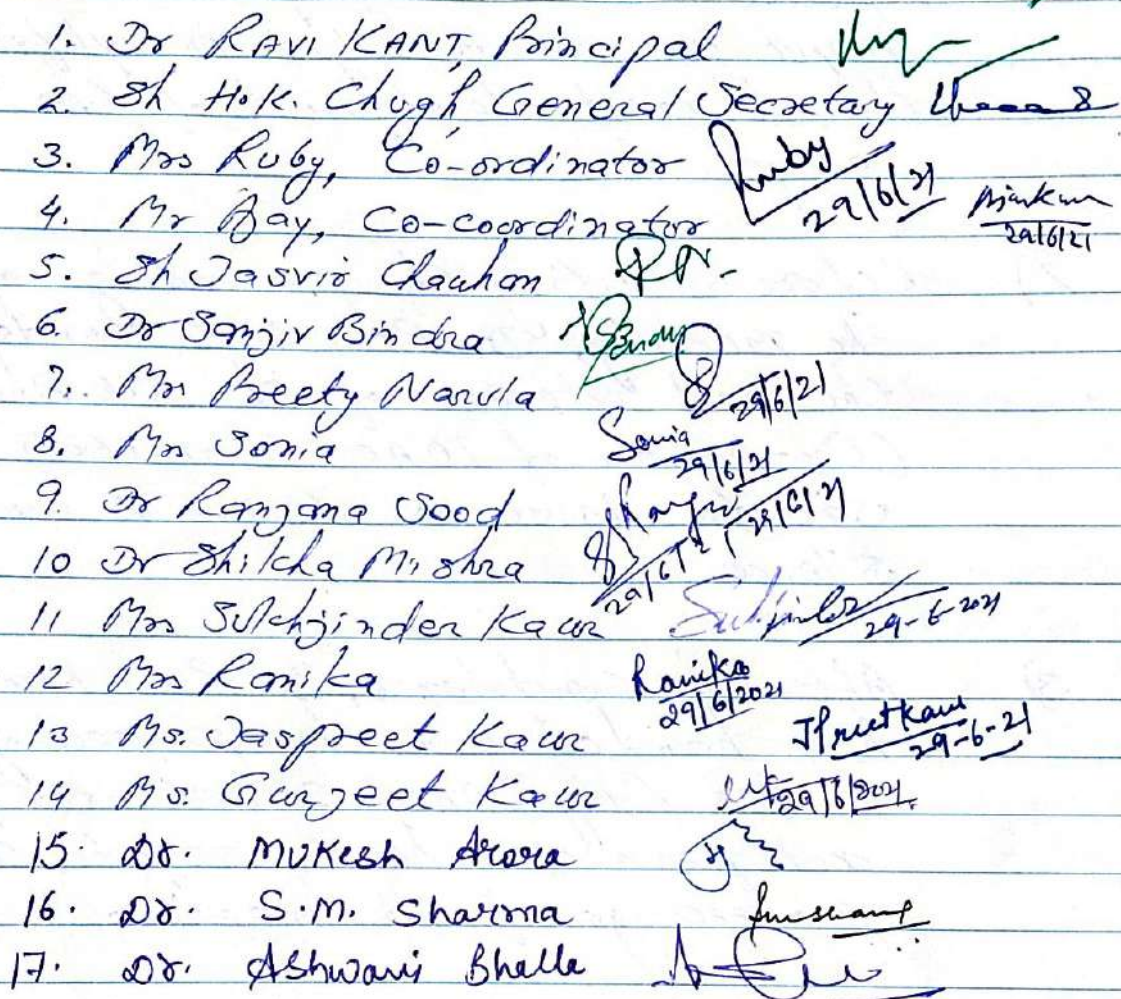 1. Dr RAVI KANT, Principal
2. Sh H.K. Chugh, General Secretary
3. Mrs Ruby, Co-ordinator Ruby 29/6/21
4. Mr Ajay, Co-coordinator 29/6/21
5. Sh Jasvir Chauhan
6. Dr Sanjiv Bindra
7. Mrs Preety Narula 29/6/21
8. Mrs Sonia Sonia 29/6/21
9. Dr Ranjana Sood 29/6/21
10 Dr Shikha Mishra 29/6/21
11 Mrs Sukhjinder Kaur 29-6-2021
12 Mrs Ranika Ranika 29/6/2021
13 Ms. Jaspreet Kaur JPreet Kaur 29-6-21
14 Ms. Gurjeet Kaur 29/6/2021
15. Dr. Mukesh Arora
16. Dr. S.M. Sharma
17. Dr. Ashwani Bhalla